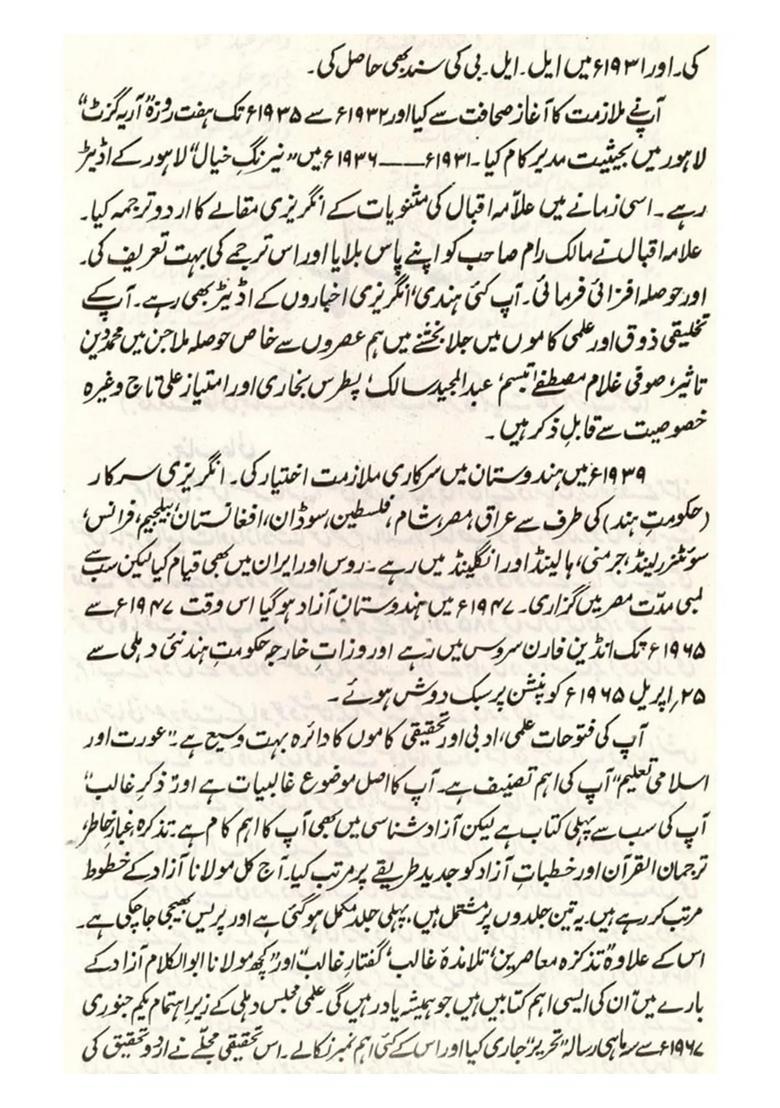 کی۔ اور ۱۹۳۱ء میں ایل۔ ایل۔ بی کی سند بھی حاصل کی۔
آپنے ملازمت کا آغاز صحافت سے کیا اور ۱۹۳۲ء سے ۱۹۳۵ء تک ہفت روزہ "آریہ گزٹ"
لاہور میں بحیثیت مدیر کام کیا۔ ۱۹۳۱ء ــــ ۱۹۳۶ء میں "نیرنگِ خیال" لاہور کے اڈیٹر
رہے۔ اسی زمانے میں علاّمہ اقبال کی مثنویات کے انگریزی مقالے کا اردو ترجمہ کیا۔
علامہ اقبال نے مالک رام صاحب کو اپنے پاس بلایا اور اس ترجمے کی بہت تعریف کی۔
اور حوصلہ افزائی فرمائی۔ آپ کئی ہندی، انگریزی اخباروں کے اڈیٹر بھی رہے۔ آپ کے
تخلیقی ذوق اور علمی کاموں میں جلا بخشنے میں ہم عصروں سے خاص حوصلہ ملا جن میں محمد دین
تاثیر، صوفی غلام مصطفےٰ تبسم، عبدالمجید سالک، پطرس بخاری اور امتیاز علی تاج وغیرہ
خصوصیت سے قابلِ ذکر ہیں۔
۱۹۳۹ء میں ہندوستان میں سرکاری ملازمت اختیار کی۔ انگریزی سرکار
(حکومتِ ہند) کی طرف سے عراق، مصر، شام، فلسطین، سوڈان، افغانستان، بیلجیم، فرانس،
سوئٹزرلینڈ، جرمنی، ہالینڈ اور انگلینڈ میں رہے۔ روس اور ایران میں بھی قیام کیا لیکن سب سے
لمبی مدّت مصر میں گزاری۔ ۱۹۴۷ء میں ہندوستان آزاد ہو گیا اس وقت ۱۹۴۷ء سے
۱۹۶۵ء تک انڈین فارن سروس میں رہے اور وزاتِ خارجہ حکومتِ ہند نئی دہلی سے
۲۵/اپریل ۱۹۶۵ء کو پنشن پر سبک دوش ہوئے۔
آپ کی فتوحات علمی، ادبی اور تحقیقی کاموں کا دائرہ بہت وسیع ہے۔ "عورت اور
اسلامی تعلیم" آپ کی اہم تصنیف ہے۔ آپ کا اصل موضوع غالبیات ہے اور "ذکرِ غالب"
آپ کی سب سے پہلی کتاب ہے لیکن آزاد شناسی میں بھی آپ کا اہم کام ہے۔ تذکرہ، غبارِ خاطر،
ترجمان القرآن اور خطباتِ آزاد کو جدید طریقے پر مرتب کیا۔ آج کل مولانا آزاد کے خطوط
مرتب کر رہے ہیں۔ یہ تین جلدوں پر مشتمل ہیں، پہلی جلد مکمل ہو گئی ہے اور پریس بھیجی جا چکی ہے۔
اس کے علاوہ "تذکرہ معاصرین، تلامذۂ غالب، گفتارِ غالب" اور "کچھ مولانا ابوالکلام آزاد کے
بارے میں" ان کی ایسی اہم کتابیں ہیں جو ہمیشہ یاد رہیں گی۔ علمی مجلس دہلی کے زیرِ اہتمام یکم جنوری
۱۹۶۷ء سے سہ ماہی رسالہ "تحریر" جاری کیا اور اس کے کئی اہم نمبر نکالے۔ اس تحقیقی مجلّے نے اردو تحقیق کی